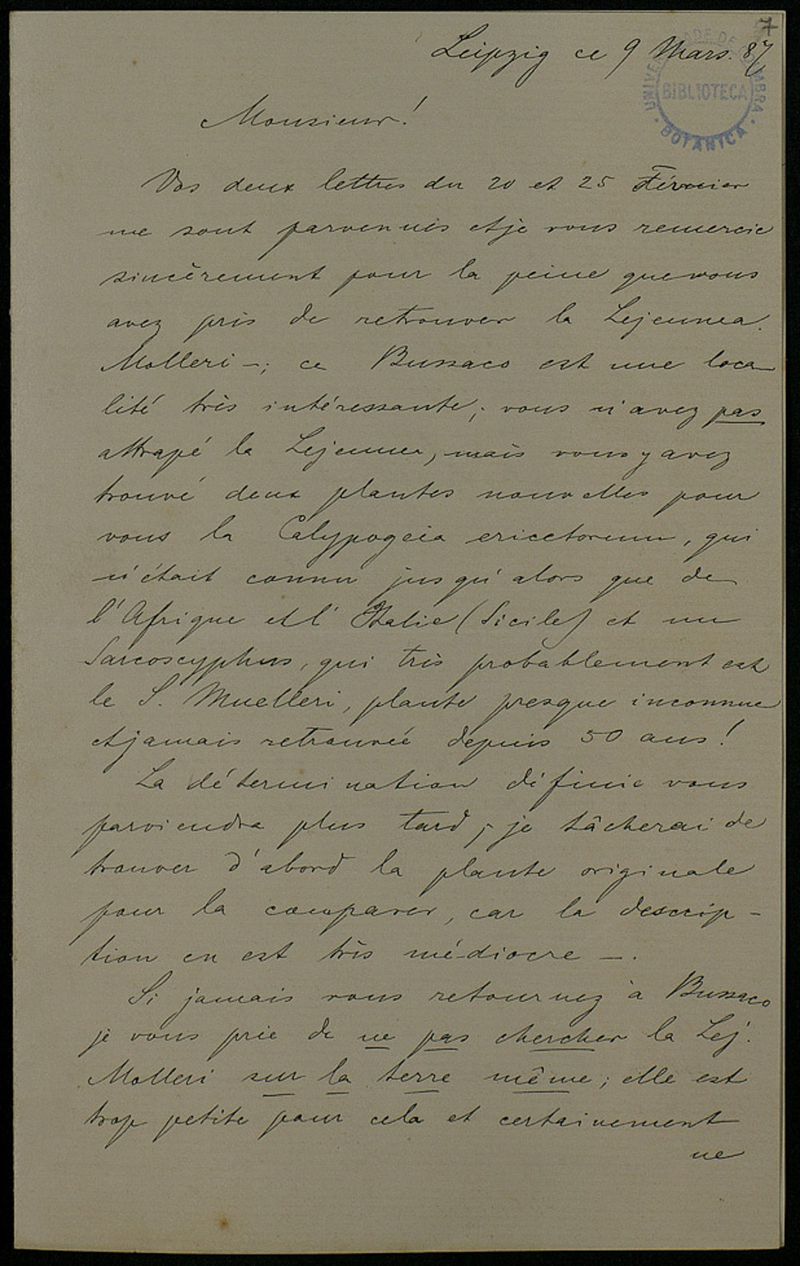 7
Leipzig ce 9 Mars. 87
UNIVERSIDADE DE COIMBRA
BIBLIOTECA
BOTANICA
Monsieur!
Vos deux lettres du 20 et 25 Février
me sont parvenues et je vous remercie
sincèrement pour la peine que vous
avez pris de retrouver la Lejeunea
Molleri –; ce Bussaco est une loca
lité très intéressante; vous n'avez pas
attrapé la Lejeunea, mais vous y avez
trouvé deux plantes nouvelles pour
vous la Calypogeia ericetorum, qui
n'était connu jusqu'alors que de
l'Afrique et l'Italie (Sicile) et un
Sarcoscyphus, qui très probablement est
le S. Muelleri, plante presque inconnue
et jamais retrouvée depuis 50 ans!
La détermination définie vous
parviendra plus tard; je tâcherai de
trouver d'abord la plante originale
pour la comparer, car la descrip-
tion en est très médiocre –.
Si jamais vous retournez à Bussaco
je vous prie de ne pas chercher la Lej.
Molleri sur la terre même; elle est
trop petite pour cela et certainement
ne